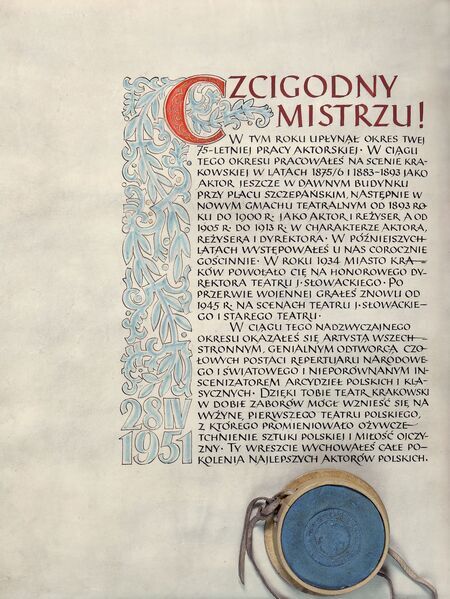 CZCIGODNY
MISTRZU!
W TYM ROKU UPŁYNĄŁ OKRES TWEJ
75-LETNIEJ PRACY AKTORSKIEJ · W CIĄGU
TEGO OKRESU PRACOWAŁEŚ NA SCENIE KRA-
KOWSKIEJ W LATACH 1875/6 I 1883-1893 JAKO
AKTOR JESZCZE W DAWNYM BUDYNKU
PRZY PLACU SZCZEPAŃSKIM, NASTĘPNIE W
NOWYM GMACHU TEATRALNYM OD 1893 RO-
KU DO 1900 R· JAKO AKTOR I REŻYSER A OD
1905 R· DO 1913 R· W CHARAKTERZE AKTORA,
REŻYSERA I DYREKTORA · W PÓŹNIEJSZYCH
LATACH WYSTĘPOWAŁEŚ U NAS COROCZNIE
GOŚCINNIE · W ROKU 1934 MIASTO KRA-
KÓW POWOŁAŁO CIĘ NA HONOROWEGO DY-
REKTORA TEATRU J· SŁOWACKIEGO · PO
PRZERWIE WOJENNEJ GRAŁEŚ ZNOWU OD
1945 R· NA SCENACH TEATRU J· SŁOWACKIE-
GO I STAREGO TEATRU ·
W CIĄGU TEGO NADZWYCZAJNEGO
OKRESU OKAZAŁEŚ SIĘ ARTYSTĄ WSZECH-
STRONNYM, GENIALNYM ODTWÓRCĄ CZO-
ŁOWYCH POSTACI REPERTUARU NARODOWE-
GO I ŚWIATOWEGO I NIEPORÓWNANYM IN-
SCENIZATOREM ARCYDZIEŁ POLSKICH I KLA-
SYCZNYCH · DZIĘKI TOBIE TEATR KRAKOWSKI
W DOBIE ZABORÓW MÓGŁ WZNIEŚĆ SIĘ NA
WYŻYNĘ PIERWSZEGO TEATRU POLSKIEGO,
Z KTÓREGO PROMIENIOWAŁO OŻYWCZE
TCHNIENIE SZTUKI POLSKIEJ I MIŁOŚĆ OJCZY-
ZNY · TY WRESZCIE WYCHOWAŁEŚ CAŁE PO-
KOLENIA NAJLEPSZYCH AKTORÓW POLSKICH.
28 IV
1951